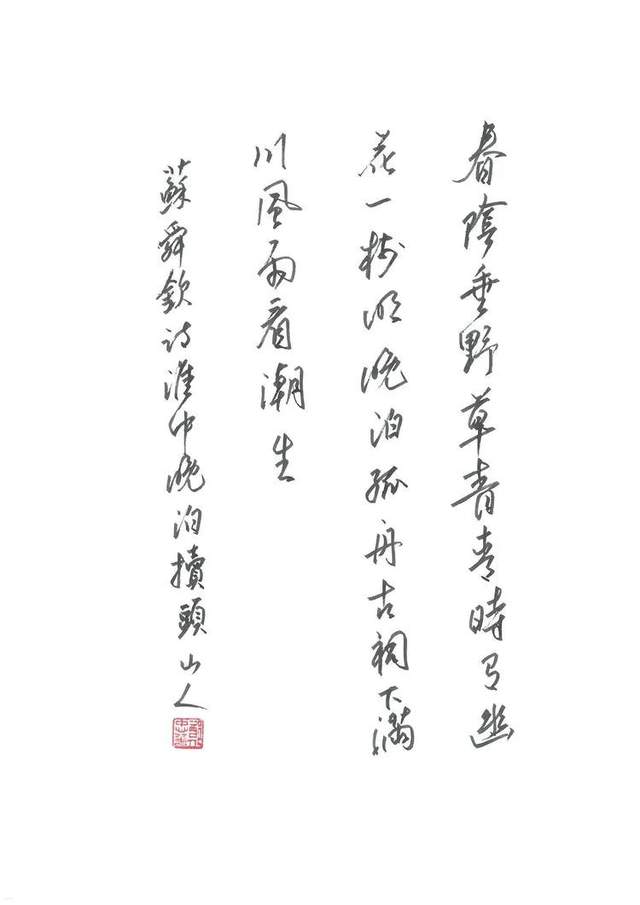 春陰垂野草青青時有幽
花一樹明晚泊孤舟古祠下滿
川風雨看潮生
蘇舜欽詩淮中晚泊犢頭 山人